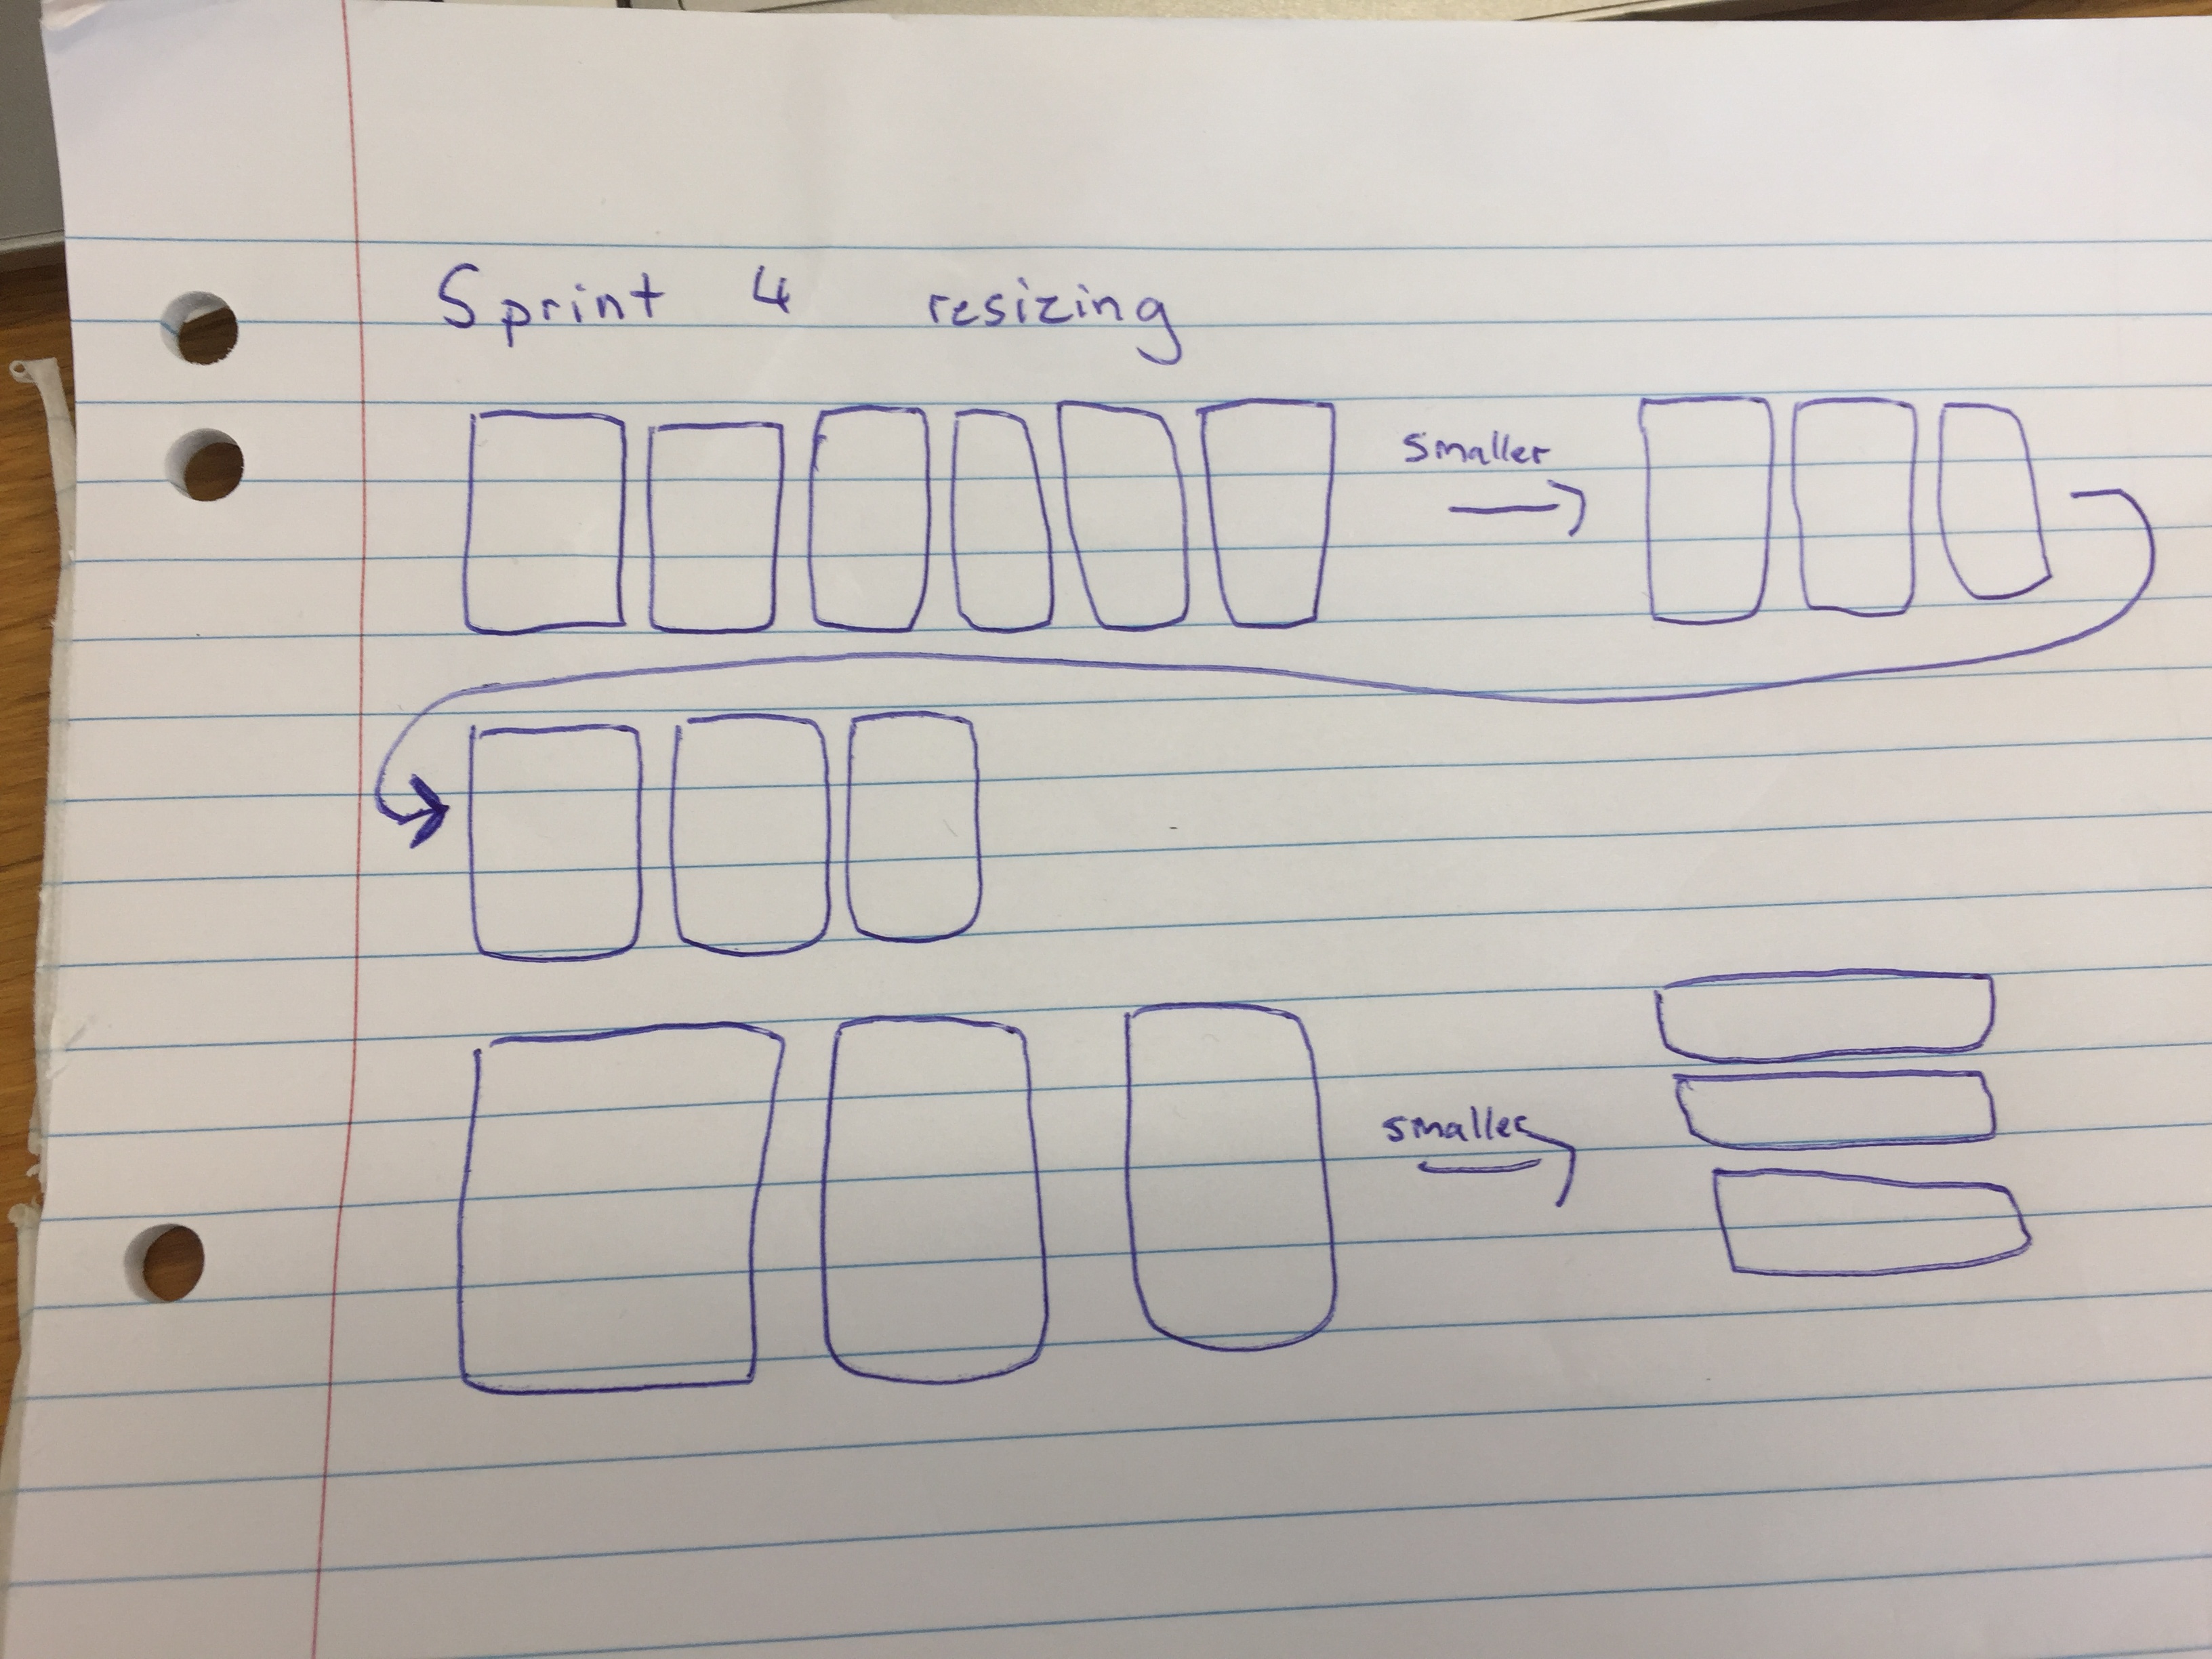 Sprint 4 resizing
smaller
smaller